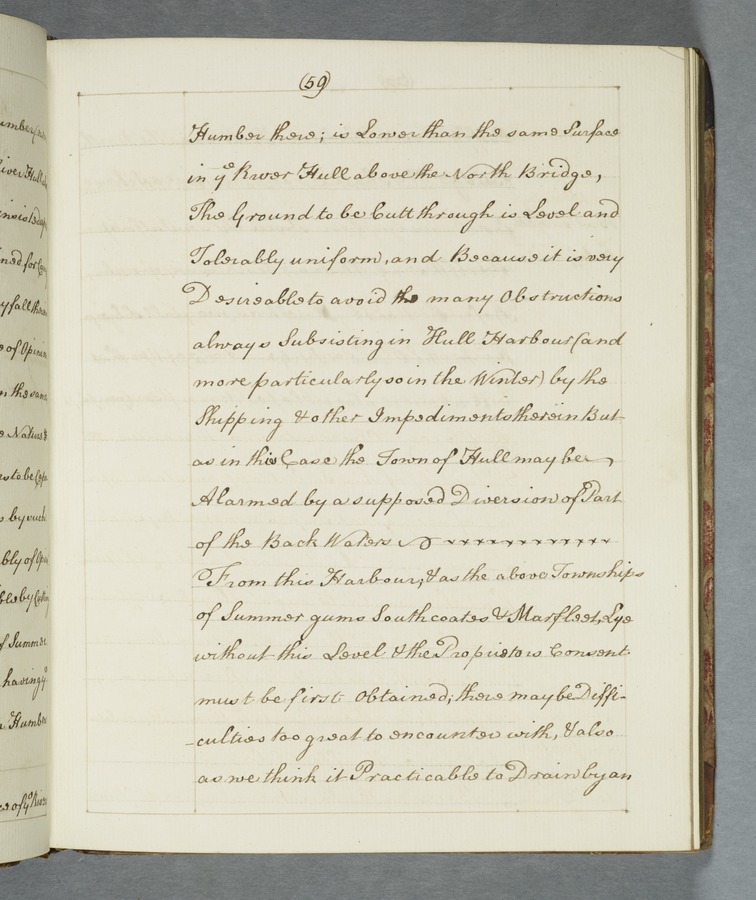 (59)
Humber there; is Lower than the same Surface
in ye River Hull above the North Bridge,
The Ground to be Cutt through is Level and
Tolerably uniform, and Because it is very
Desireable to avoid the many Obstructions
always Subsisting in Hull Harbour (and
more particularly so in the Winter) by the
Shipping & other Impediments therein But
as in this Case the Town of Hull may be
Alarmed by a supposed Diversion of Part
of the Back Waters
From this Harbour, & as the above Townships
of Summergums Southcoates & Marfleet, Lye
without this Level & the Proprietors Consent
must be first Obtained; there may be Diffi-
-culties too great to encounter with, & also
as we think it Practicable to Drain by an